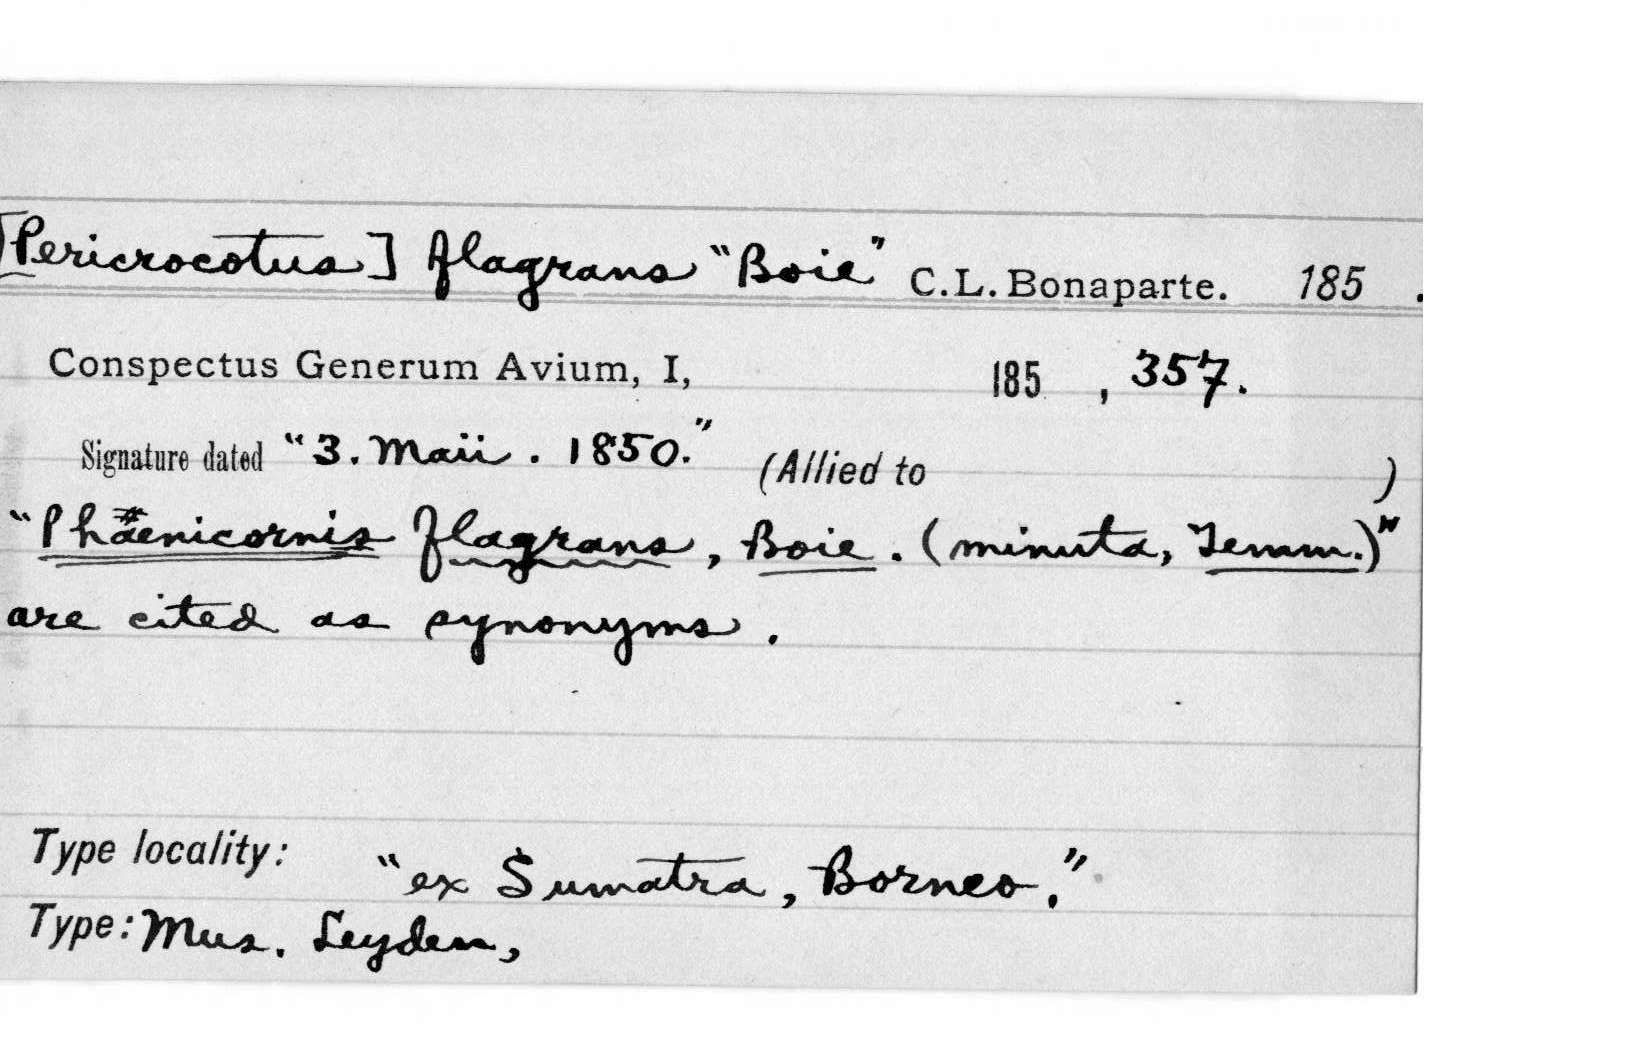 [Pericrocotus] flagrans “Boie” C.L. Bonaparte. 185 .
Conspectus Generum Avium, I, 185 , 357.
Signature dated “3. Maii. 1850.” (Allied to )
“Phaenicornis flagrans, Boie. (minuta, Temm.)”
are cited as synonyms.
Type locality: “ex Sumatra, Borneo.”
Type: Mus. Leyden,